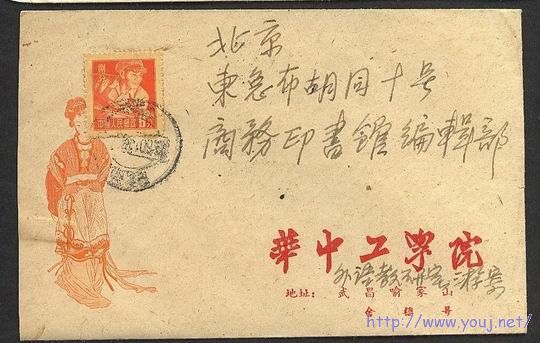 北京
東总布胡同十号
商務印書館編輯部
華中工學院
外語教研室
地址：武昌喻家山
信箱 号
http://www.youj.net/